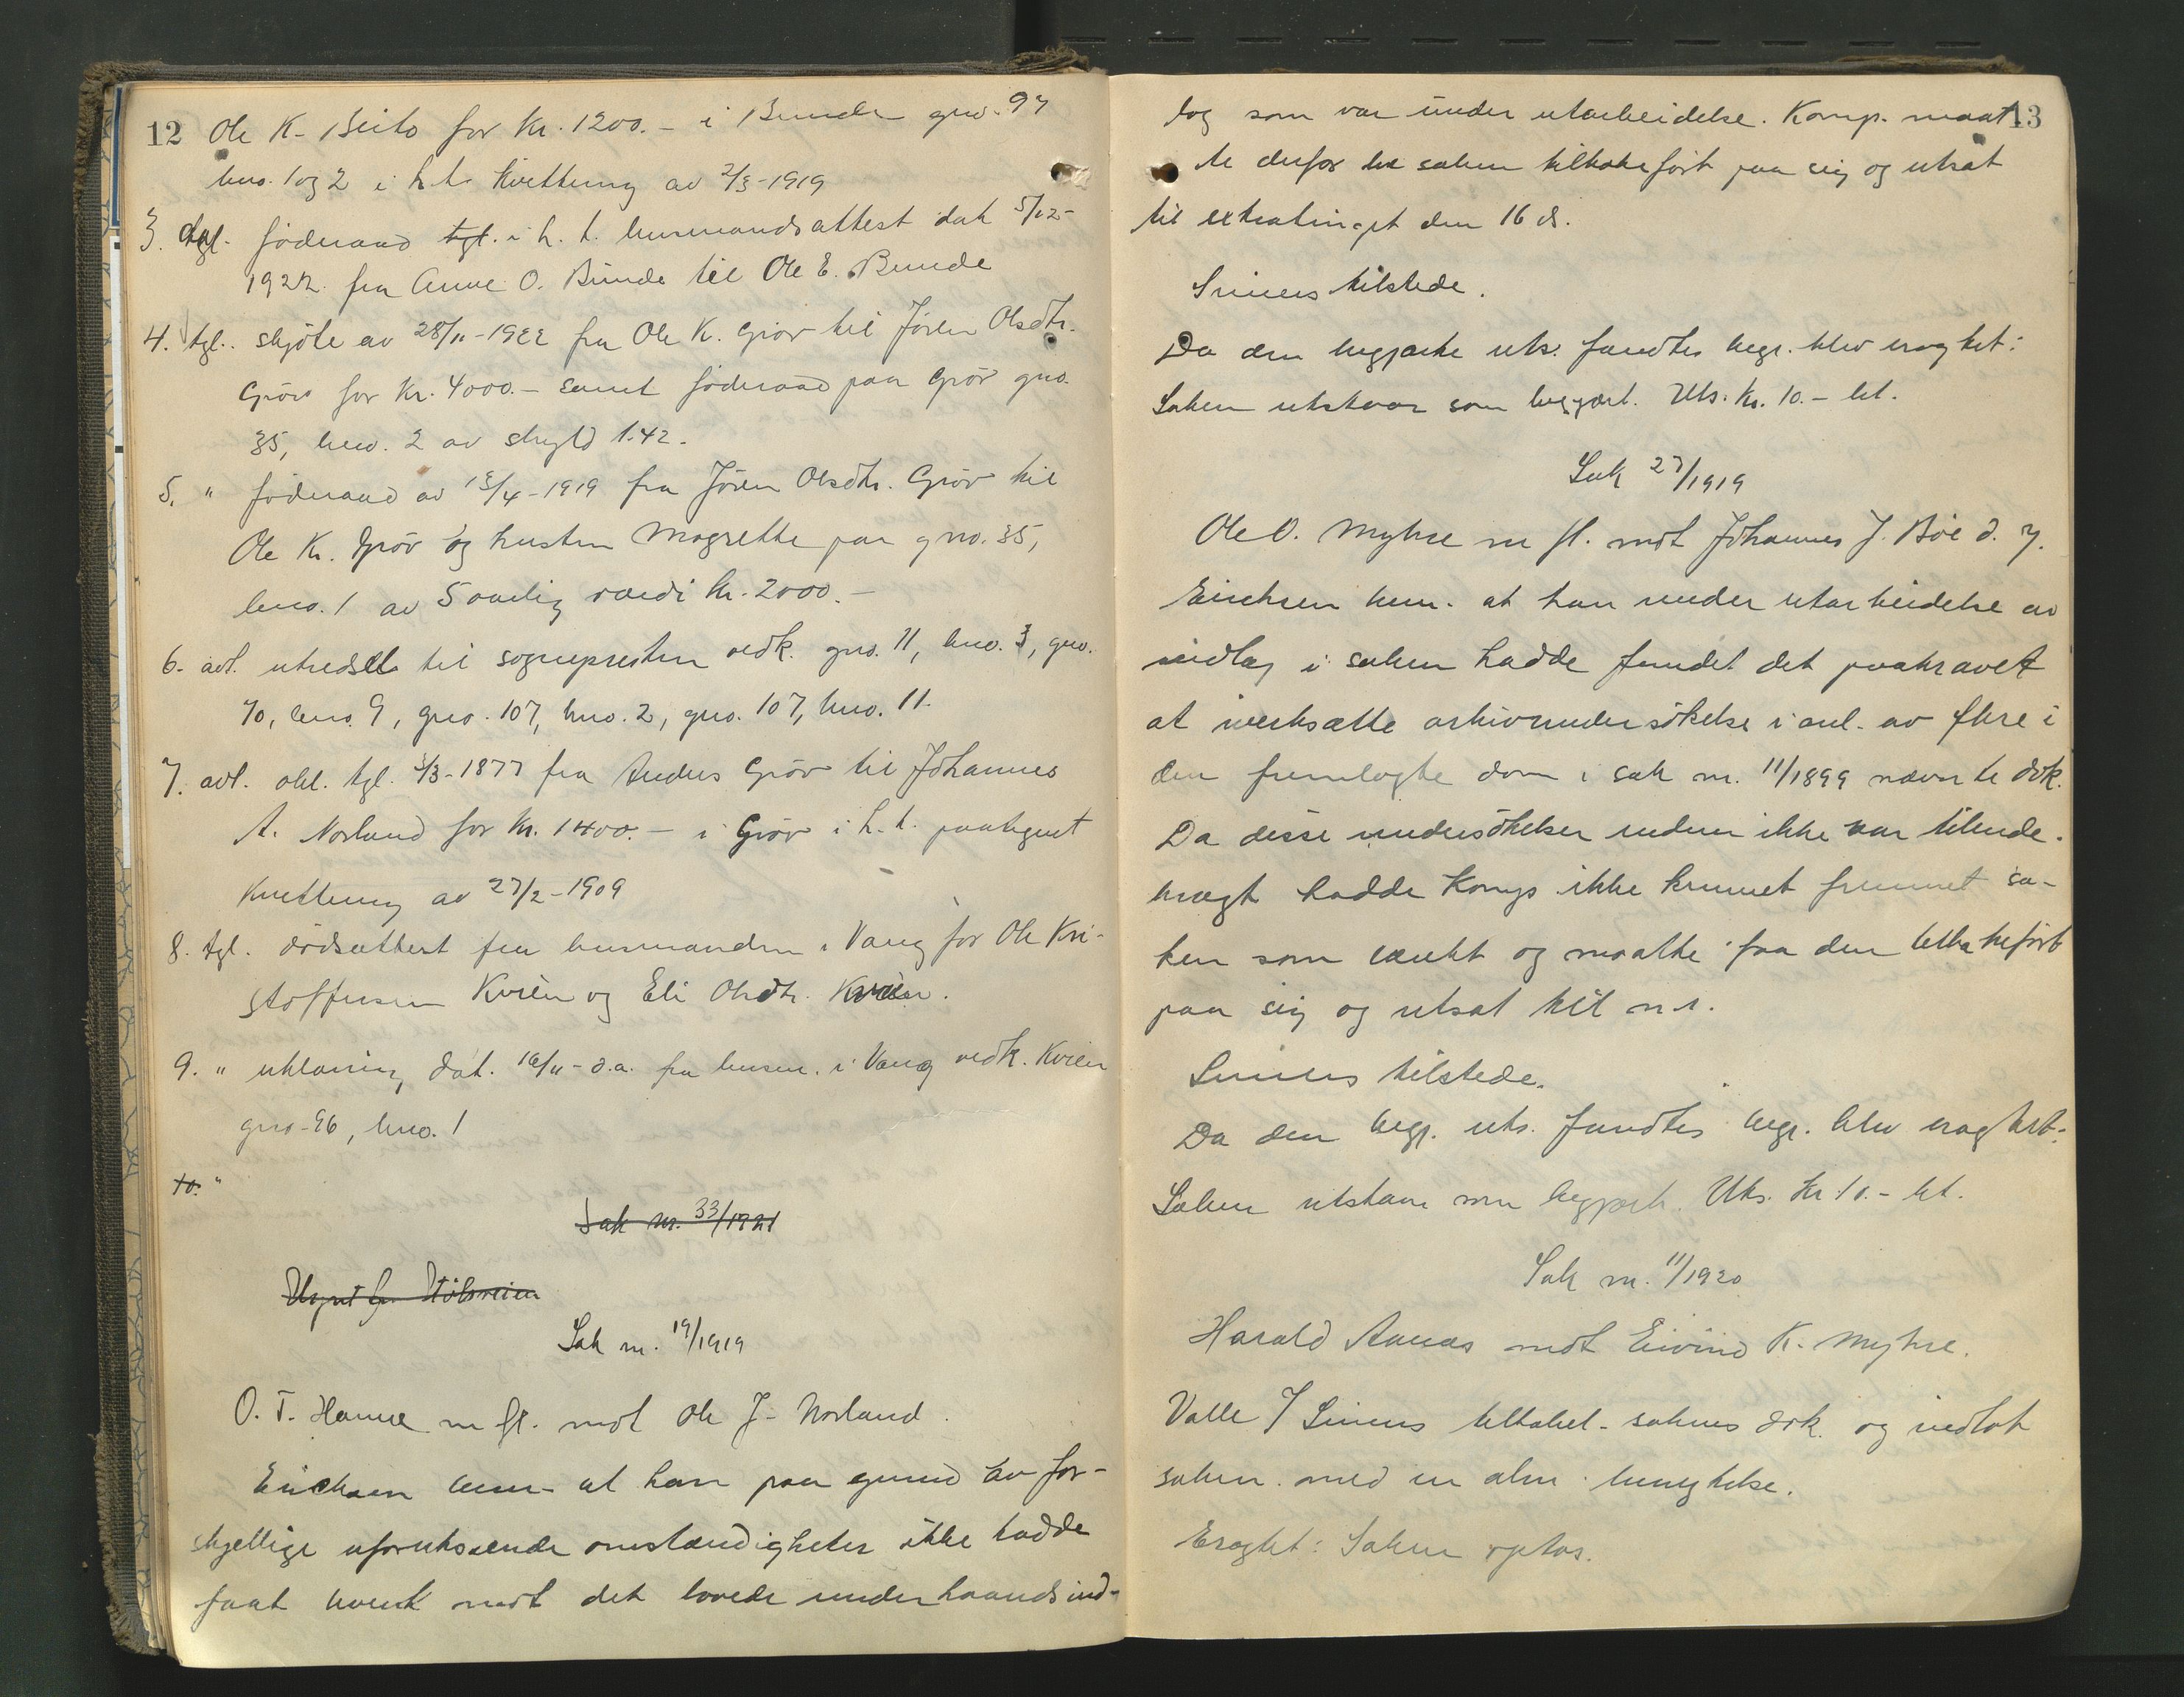 12 Ole K. Beito for kr. 1200.- i Bunde gno. 97
bno. 1 og 2 i h.t. kvittering av 2/3-1919
3. tgl. föderaad tgl. i h. t. lensmandsattest dat 5/12-
1922 fra Anne O. Bunde til Ole E. Bunde
4. tgl. skjöte av 28/11-1922 fra Ole K. Gröv til Jören Olsdtr.
Gröv for kr. 4000.- samt föderaad paa Gröv gno.
35, bno. 2 av skyld 1.42.
5. " föderaad av 15/4-1919 fra Jören Olsdtr. Gröv til
Ole K. Gröv og hustru Magrethe paa gno. 35,
bno. 1 av 5 aarlig værdi kr. 2000.-
6. avl. utredsel til sognepresten vedk. gno. 11, bno. 3, gno.
70, bno. 9, gno. 107, bno. 2, gno. 107, bno. 11.
7. avl. obl. tgl. 5/3-1877 fra Anders Gröv til Johannes
A. Norland for kr. 1400.- i Gröv i h. t. paategnet
kvittering av 27/2-1909
8. tgl. dödsattest fra lensmanden i Vang for Ole Kri-
stoffersen Kvien og Eli Olsdtr. Kvien.
9. " utlæning dat. 16/11-d.a. fra lensm. i Vang vedk. Kvien
gno. 96, bno. 1
10. "
Sak nr. 33/1921
Stölsveien
Sak nr. 19/1919
O. T. Hamre m fl. mot Ole J. Norland.
Erichsen bem. at han paa grund av for-
skjellige uforutseende omstændigheter ikke hadde
faat levert mot det lovede underhaandsind-
13
læg som var under utarbeidelse. Komp. maat
te derfor be saken tilbakefört paa sig og utsat
til extratinget den 16 ds.
Sinens tilstede.
Da den begjærte uts. fandtes begr. blev eragtet:
Saken utstaar som begjært. Uts. kr. 10.- bet.
Sak 27/1919
Ole O. Myhre m fl. mot Johannes J. Böe d. y.
Erichsen bem. at han under utarbeidelse av
indlæg i saken hadde fundet det paakrævet
at iverksætte arkivundersökelse i anl. av flere i
den fremlagte dom i sak nr. 11/1899 nævnte dok.
Da disse undersökelser endnu ikke var tilende-
bragt hadde komp ikke kunnet fremmet sa-
ken som ventet og maatte faa den tilbakefört
paa sig og utsat til n. r.
Sinens tilstede.
Da den begj. uts. fandtes begr. blev eragtet:
Saken utstaar som begjært. Uts. kr 10.- bet.
Sak nr. 11/1920
Harald Aanas mot Eivind K. Myhre.
Valle f Sinens tilbakel. sakens dok. og indlot
saken med en alm. benegtelse.
Eragtet: Saken optas.